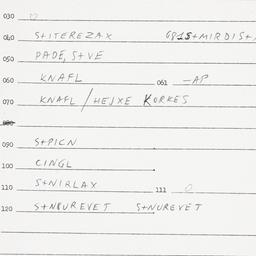 030
040 S+ITEREZAX 081S+MIRDIS+
050 PADE, S+VE
060 KNAFL 061 —AP
070 KNAFL / HEJXE KORKES
080
090 S+PICN
100 CINGL
110 S+NIRLAX 111 O
120 S+NOUREVET S+NUREVET